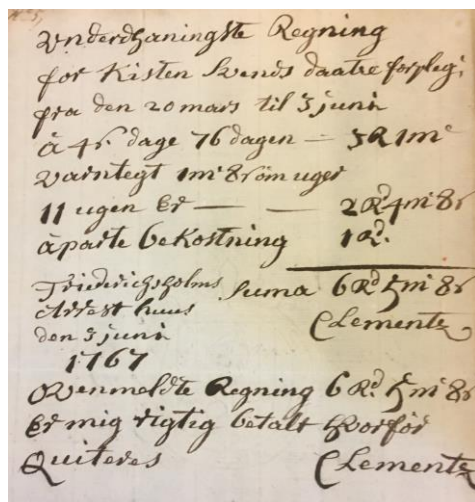 Underdhaningste Regning
for Kisten Svends daatre forpleg:
fra den 20 mars til 3 juni
à 4 s. dage 76 dagen — 3 R 1 m
varntegt 1 m 8 s öm uger
11 ugen Er — — 2 Rd 4 m 8 s
àparte beKostning 1 Rd.
Friederichsholms Suma 6 Rd 5 m 8 s
Arrest huus Clementz
den 3 juni
1767
Ovenmeldte Regning 6 Rd. 5 m 8 s
Er mig rigtig betalt hvorfor
Quiteres Clementz